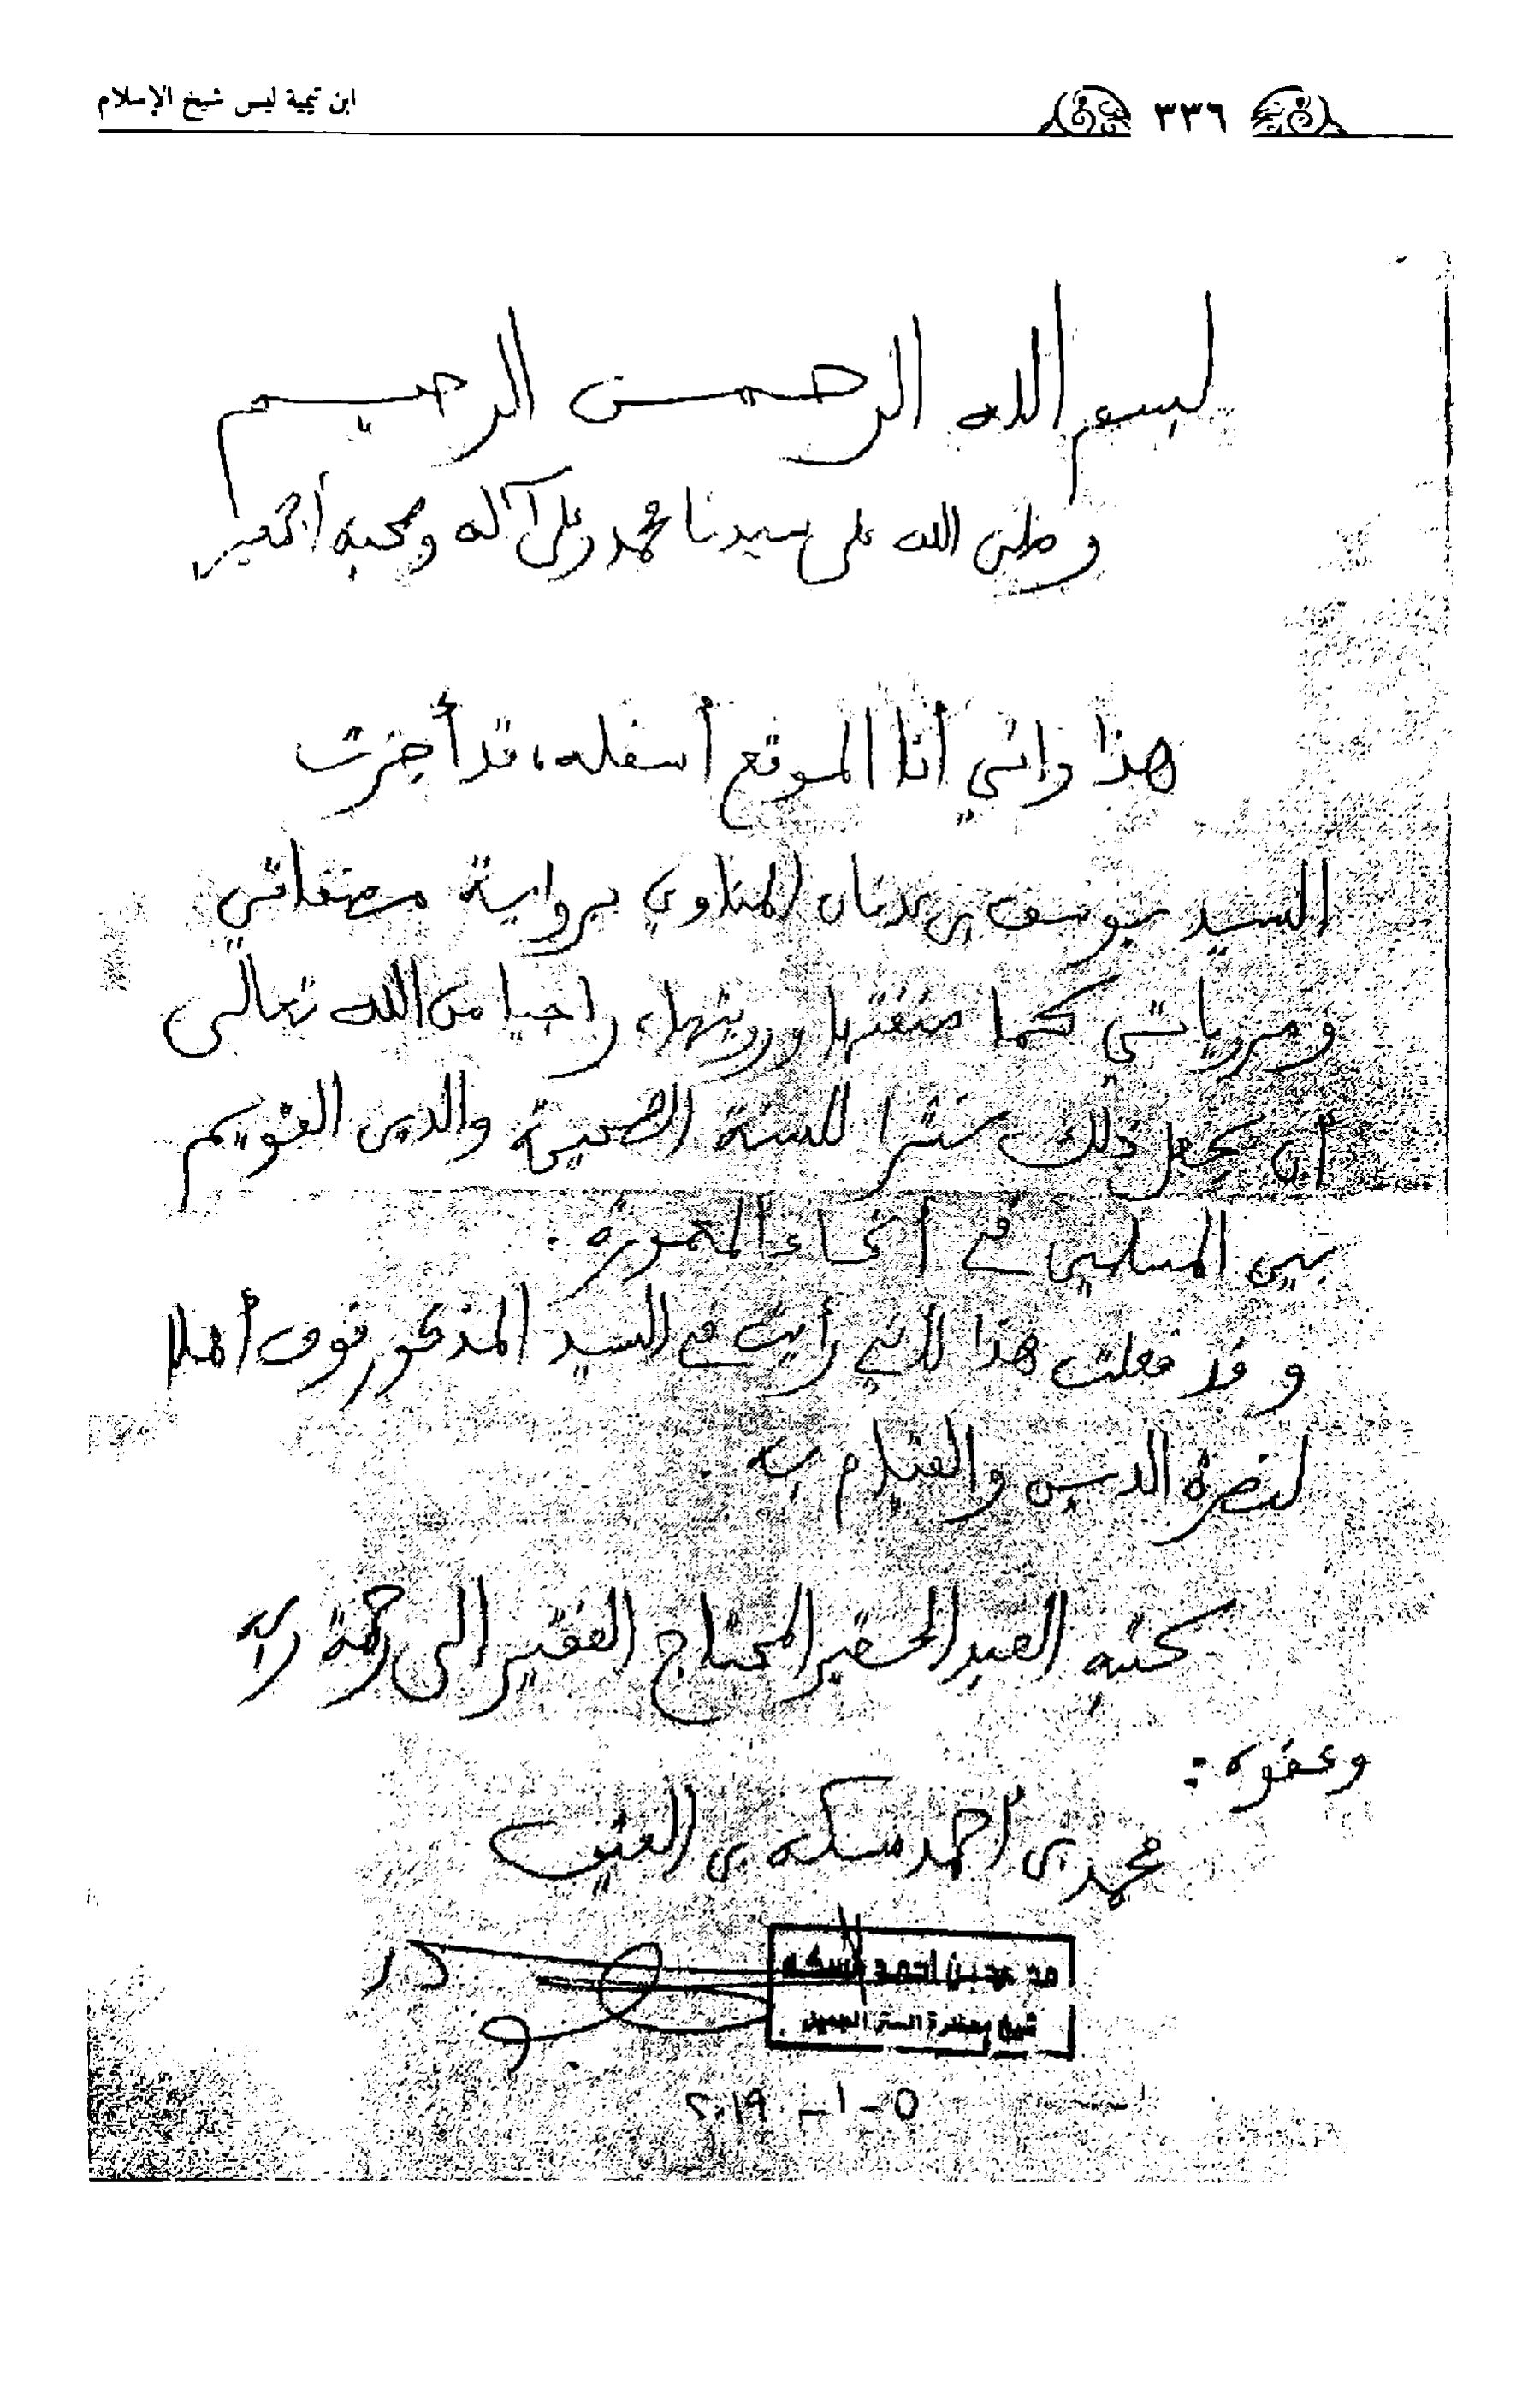 ٣٣٦
ابن تيمية ليس شيخ الإسلام
بسم الله الرحمن الرحيم
وصلى الله على سيدنا محمد وعلى آله وصحبه أجمعين
هذا وإنني أنا الموقع أسفله، قد أجزت
السيد يوسف بن عدنان المناوي برواية مصنفاتي
ومروياتي كما صنفتها ورويتها، راجيا من الله تعالى
أن يجعل ذلك نشرا للسنة الصحيحة والدين القويم
بين المسلمين في أنحاء المعمورة.
وقد فعلت هذا لأنني رأيت في السيد المذكور فوق أهلا
لنصرة الدين والقيام به.
كتبه العبد الحقير المحتاج الفقير إلى رحمة ربه
وعفوه:
محمد بن أحمد مسكه بن العتيق
محمد بن أحمد مسكه
شيخ محظرة الستر الجميل
٥-١-٢٠١٩